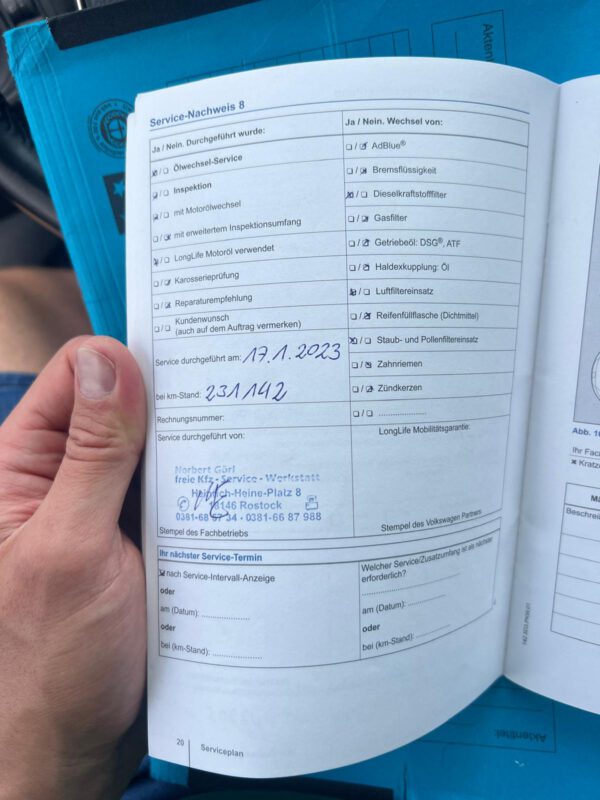 Aktent
Service-Nachweis 8
Ja / Nein. Durchgeführt wurde:
☒ / ☐ Ölwechsel-Service
☒ / ☐ Inspektion
☒ / ☐ mit Motorölwechsel
☐ / ☒ mit erweitertem Inspektionsumfang
☒ / ☐ LongLife Motoröl verwendet
☐ / ☒ Karosserieprüfung
☐ / ☒ Reparaturempfehlung
☐ / ☐ Kundenwunsch
(auch auf dem Auftrag vermerken)
Service durchgeführt am: 17.1.2023
bei km-Stand: 231142
Rechnungsnummer:
Service durchgeführt von:
Norbert Görl
freie Kfz - Service - Werkstatt
Heinrich-Heine-Platz 8
18146 Rostock
0381-68 34 - 0381-66 87 988
Stempel des Fachbetriebs
Ja / Nein. Wechsel von:
☐ / ☒ AdBlue®
☐ / ☒ Bremsflüssigkeit
☒ / ☐ Dieselkraftstofffilter
☐ / ☒ Gasfilter
☐ / ☒ Getriebeöl: DSG®, ATF
☐ / ☒ Haldexkupplung: Öl
☒ / ☐ Luftfiltereinsatz
☐ / ☒ Reifenfüllflasche (Dichtmittel)
☒ / ☐ Staub- und Pollenfiltereinsatz
☐ / ☒ Zahnriemen
☐ / ☒ Zündkerzen
☐ / ☐ ....................
LongLife Mobilitätsgarantie:
Stempel des Volkswagen Partners
Ihr nächster Service-Termin
☒ nach Service-Intervall-Anzeige
oder
am (Datum): ....................
oder
bei (km-Stand): ....................
Welcher Service/Zusatzumfang ist als nächster
erforderlich?
....................
am (Datum): ....................
oder
bei (km-Stand): ....................
20 Serviceplan
Abb. 
Ihr Fach
Kratz
Beschrei
Aktentitel: